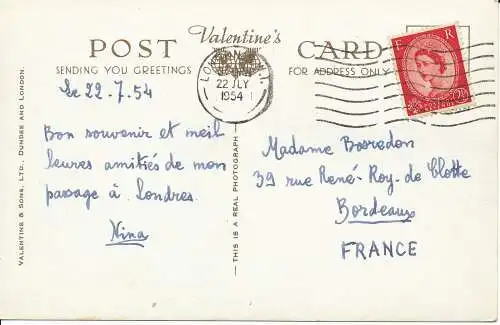 POST Valentine's CARD
SENDING YOU GREETINGS
FOR ADDRESS ONLY
22 JLY
1954
E R
2½
Le 22.7.54
Bon souvenir et meil
leures amitiés de mon
passage à Londres.
Nina
Madame Bosredon
39 rue René-Roy-de Clotte
Bordeaux
FRANCE
VALENTINE & SONS, LTD., DUNDEE AND LONDON.
— THIS IS A REAL PHOTOGRAPH —